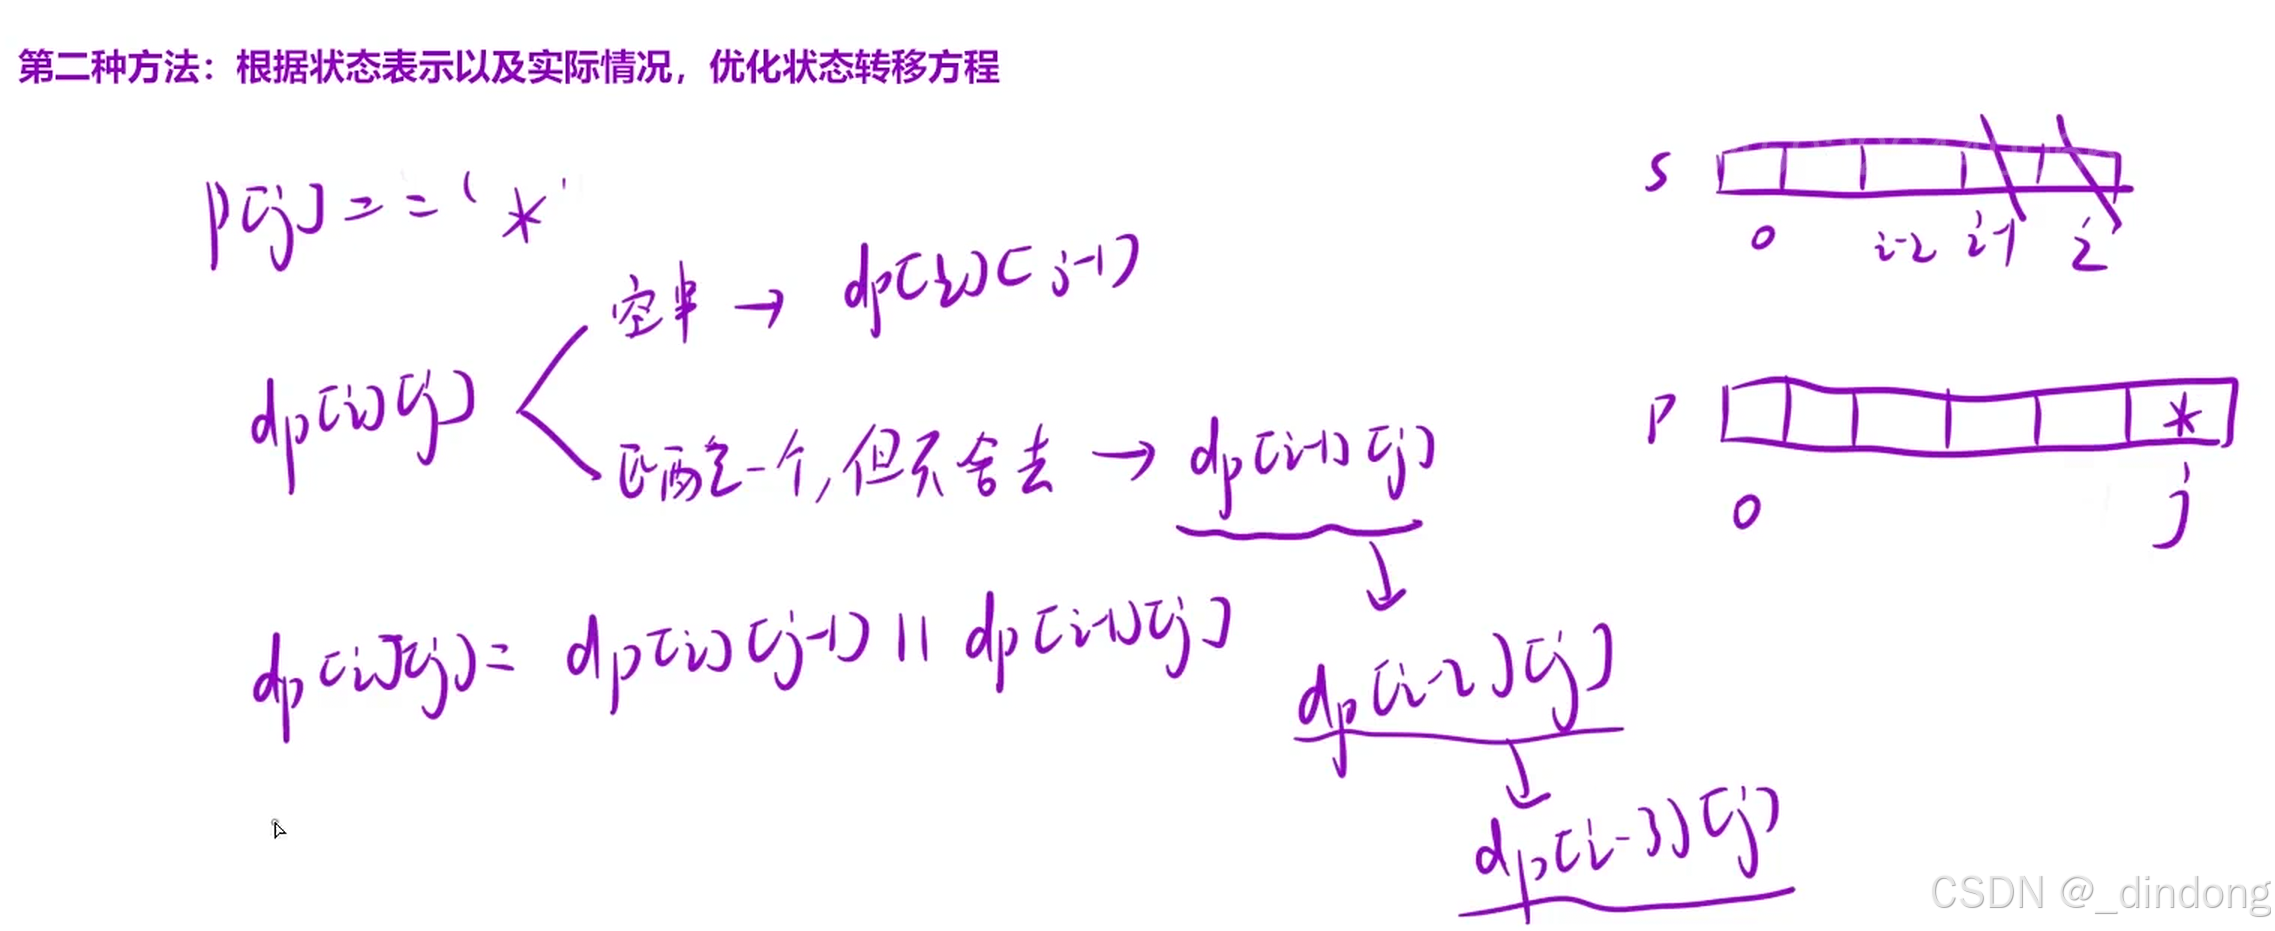 第二种方法：根据状态表示以及实际情况，优化状态转移方程
p[j] == '*'
dp[i][j]
空串 → dp[i][j-1]
匹配一个，但不舍去 → dp[i-1][j]
dp[i-2][j]
dp[i-3][j]
dp[i][j] = dp[i][j-1] || dp[i-1][j]
s
0 i-2 i-1 i
p
*
0 j
CSDN @_dindong